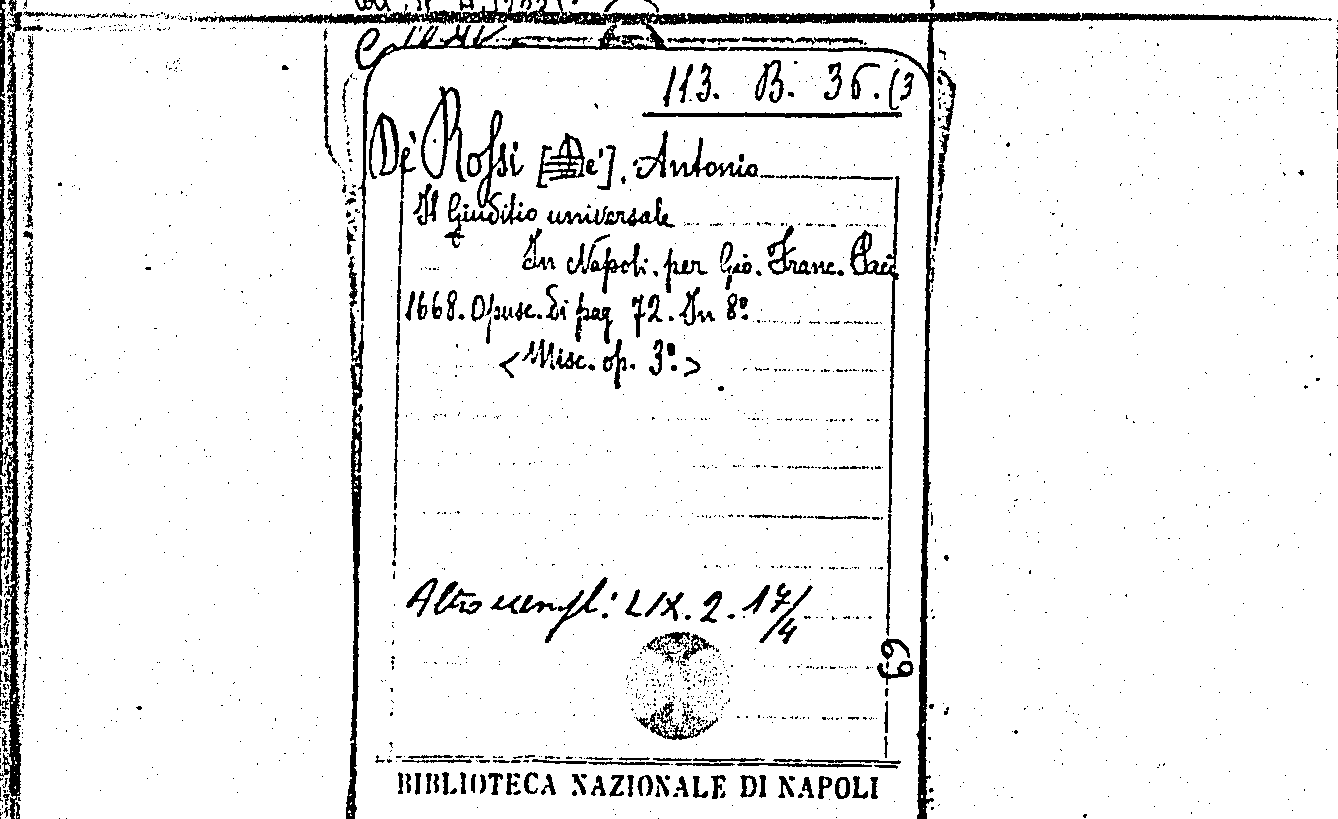 113. B. 36. (3
De' Rossi [De'], Antonio
Il Giuditio universale
In Napoli. per Gio. Franc. Paci
1668. Opusc. di pag 72. In 8º.
<Misc. op. 3º.>
Altro esempl: LIX. 2. 17/4
69
BIBLIOTECA NAZIONALE DI NAPOLI